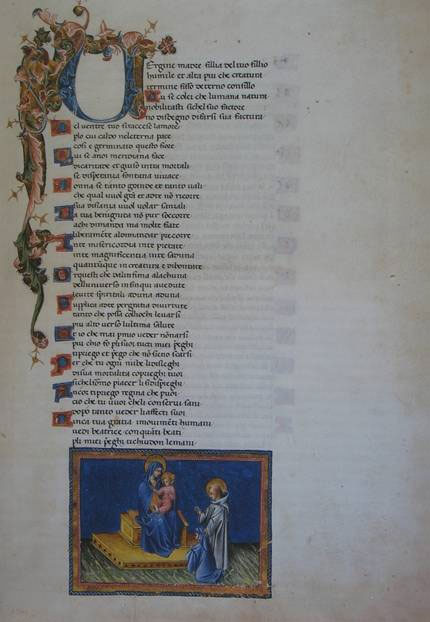 Vergine madre fillia del tuo fillio
humile et alta piu che creatura
termine fisso deterno consillo
Tu se colei che lumana natura
nobilitasti sichel suo factore
no disdegno di farsi sua factura
Nel ventre tuo si raccese lamore
plo cui caldo neleterna pace
cosi e germinato questo fiore
Qui se anoi meridiana face
di caritate et giuso intra mortali
se di sperança fontana vivace
Donna se tanto grande et tanto uali
che qual vuol gratia et ate no ricorre
sua disiança vuol volar sanza ali
La tua benignita no pur soccorre
achi dimanda ma molte fiate
liberamente al dimandar precorre
In te misericordia in te pietate
in te magnificentia in te saduna
quantunque in creatura e di bonitate
Or questi che dalinfima alachuna
delluniverso infin qui a vedute
le vite spiritali aduna aduna
Supplica ate per gratia di virtute
tanto che possa collochi levarsi
piu alto verso lultima salute
Et io che mai pmio veder non arsi
piu chio fo plo suo tucti miei pghi
ti porgo et pgo che no sieno scarsi
Per che tu ogni nube li disleghi
di sua mortalita co pghi tuoi
sichel sommo piacer li si dispieghi
Ancor ti priego regina che puoi
cio che tu vuoi che li conservi sani
dopo tanto veder li affecti suoi
Vinca tua guardia i movimeti humani
vedi beatrice con quati beati
pli miei pghi ti chiudon le mani